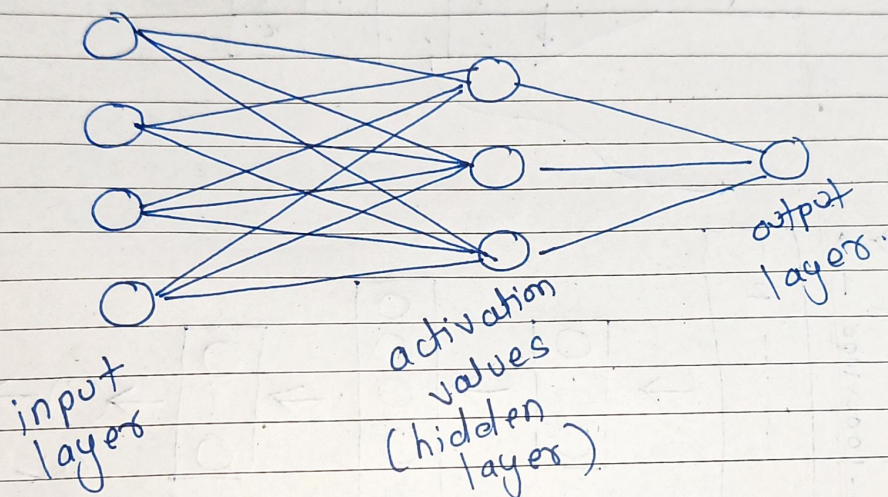 input
layer
activation
values
(hidden
layer)
output
layer.